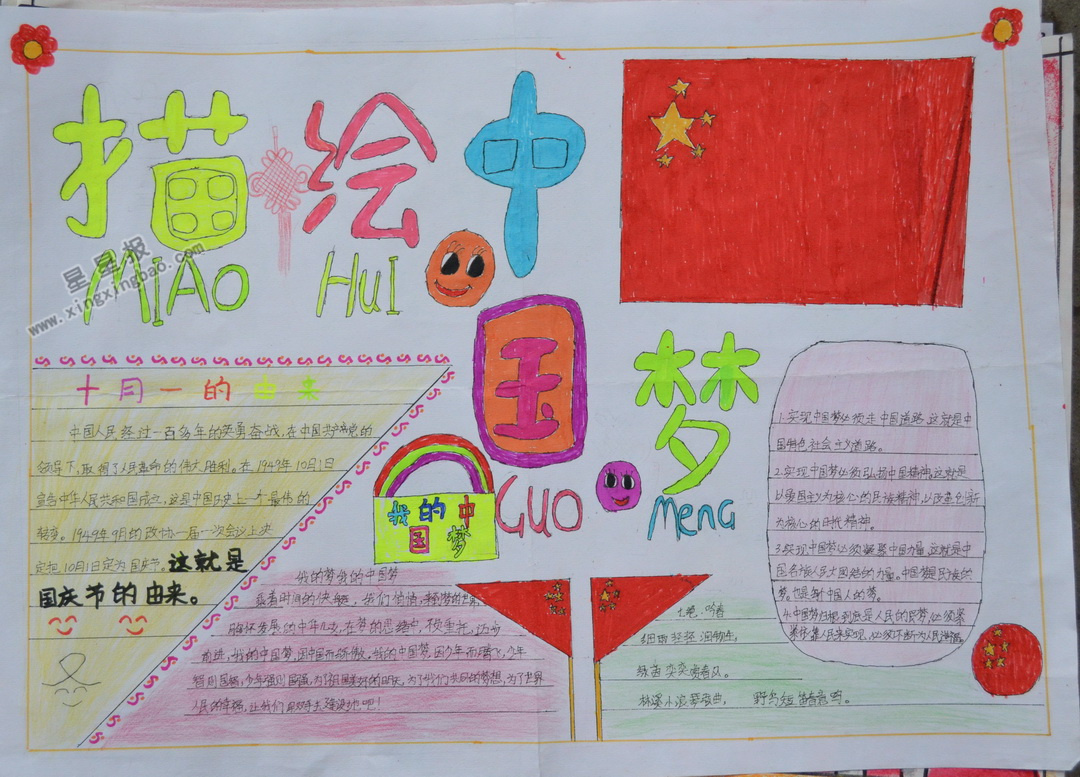 描绘中
MIAO HUI
国
梦
GUO Meng
星星报
www.xingxingbao.com
十月一的由来
中国人民经过一百多年的英勇奋战,在中国共产党的
领导下,取得了人民革命的伟大胜利。在1949年10月1日
宣告中华人民共和国成立,这是中国历史上一个最伟大的
转变。1949年9月的政协一届一次会议上决
定把10月1日定为国庆节。这就是
国庆节的由来。
我的中
国梦
我的梦我的中国梦
我们
胸怀发展的中华儿女,在梦的思绪中,
前进,我的中国梦,因中国而骄傲,我的中国梦,因少年而腾飞,少年
智则国智,少年强则国强,为了祖国美好的明天,为了我们共同的梦想,为了世界
人民的幸福,让我们
七绝·吟春
细雨轻轻润物生,
林溪小浪琴弦曲, 野鸟短笛
1.实现中国梦必须走中国道路,这就是中
国特色社会主义道路。
2.实现中国梦必须弘扬中国精神,这就是
以爱国主义为核心的民族精神,以改革创新
为核心的时代精神。
3.实现中国梦必须凝聚中国力量,这就是中
国各族人民大团结的力量。中国梦是民族的
梦,也是每个中国人的梦。
4.中国梦归根到底是人民的梦,必须紧
紧依靠人民来实现,必须不断为人民造福